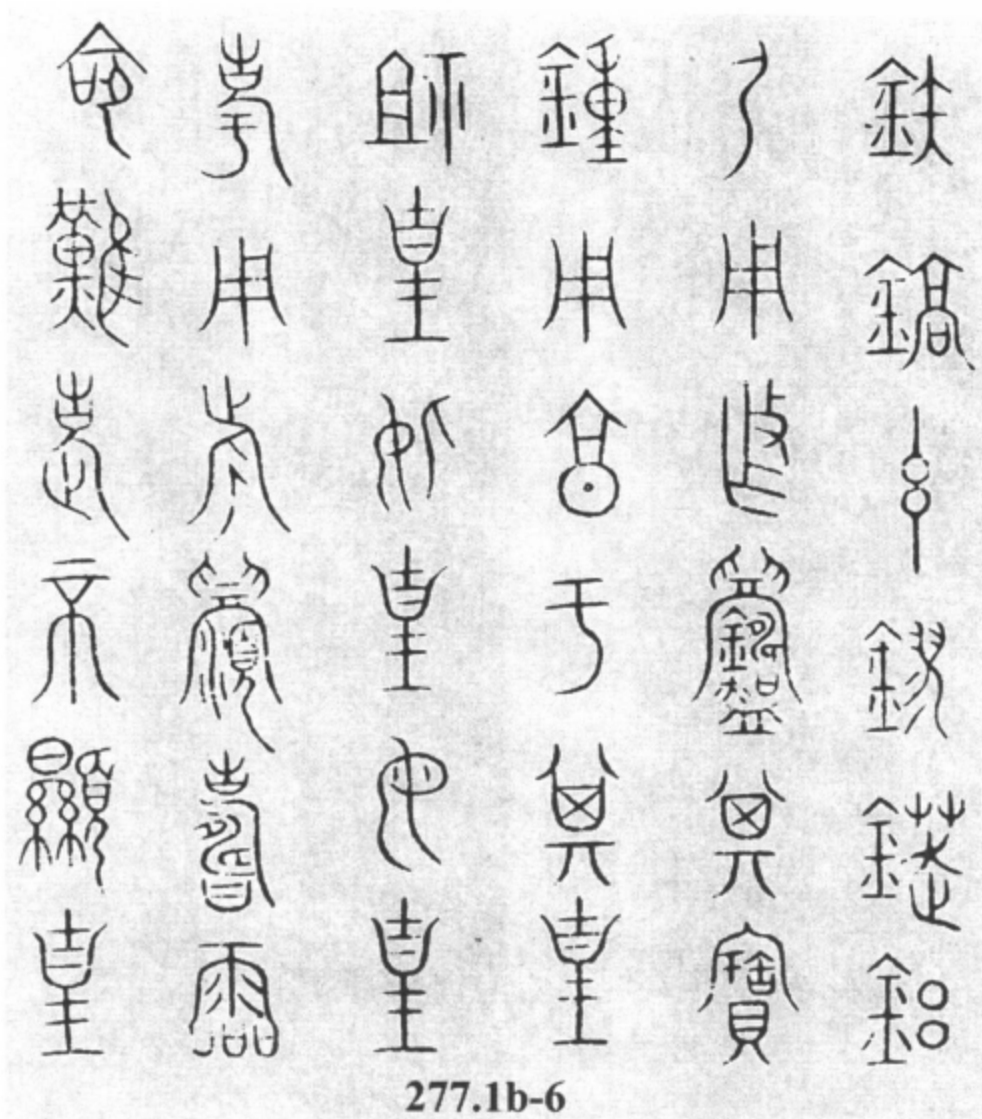 鈇鎬玄鏐錛鋁
尸用乍鑄其寶
鍾用亯于其皇
祖皇妣皇母皇
考用旂眉壽霝
命難老不顯皇
277.1b-6